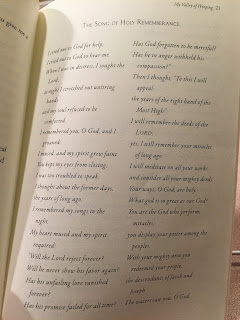 My Valley of Weeping 21
THE SONG OF HOLY REMEMBERANCE
I cried out to God for help;
I cried out to God to hear me.
When I was in distress, I sought the
Lord;
at night I stretched out untiring
hands
and my soul refused to be
comforted.
I remembered you, O God, and I
groaned;
I mused, and my spirit grew faint.
You kept my eyes from closing;
I was too troubled to speak.
I thought about the former days,
the years of long ago;
I remembered my songs in the
night.
My heart mused and my spirit
inquired:
"Will the Lord reject forever?
Will he never show his favor again?
Has his unfailing love vanished
forever?
Has his promise failed for all time?
Has God forgotten to be merciful?
Has he in anger withheld his
compassion?"
Then I thought, "To this I will
appeal:
the years of the right hand of the
Most High."
I will remember the deeds of the
LORD;
yes, I will remember your miracles
of long ago.
I will meditate on all your works
and consider all your mighty deeds.
Your ways, O God, are holy.
What god is so great as our God?
You are the God who performs
miracles;
you display your power among the
peoples.
With your mighty arm you
redeemed your people,
the descendants of Jacob and
Joseph.
The waters saw you, O God,